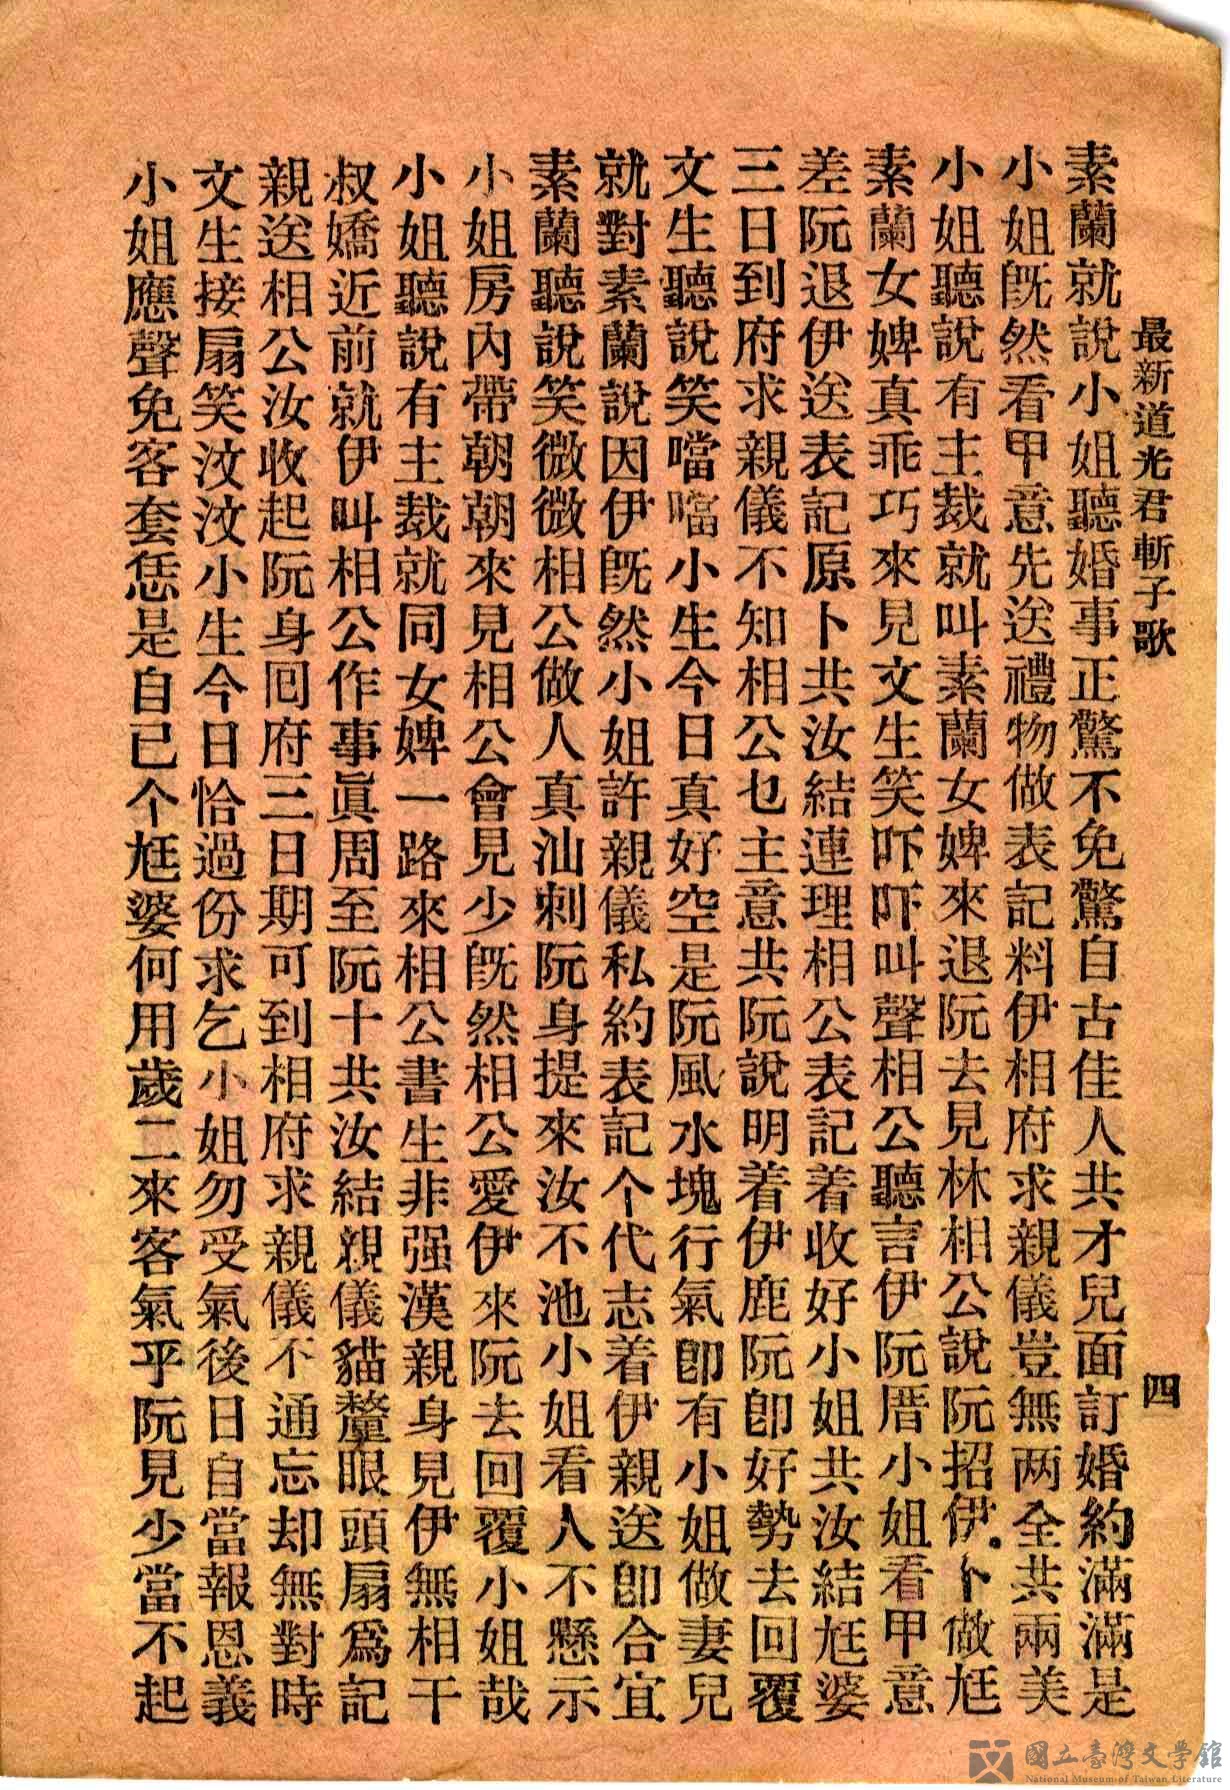 最新道光君斬子歌
四
素蘭就說小姐聽婚事正驚不免驚自古佳人共才兒面訂婚約滿滿是
小姐旣然看甲意先送禮物做表記料伊相府求親儀豈無两全共兩美
小姐聽說有主裁就叫素蘭女婢來退阮去見林相公說阮招伊卜做尪
素蘭女婢真乖巧來見文生笑吓吓叫聲相公聽言伊阮厝小姐看甲意
差阮退伊送表記原卜共汝結連理相公表記着收好小姐共汝結尪婆
三日到府求親儀不知相公乜主意共阮說明着伊鹿阮卽好勢去回覆
文生聽說笑噹噹小生今日真好空是阮風水塊行氣卽有小姐做妻兒
就對素蘭說因伊旣然小姐許親儀私約表記个代志着伊親送卽合宜
素蘭聽說笑微微相公做人真汕刺阮身提來汝不池小姐看人不懸示
小姐房內帶朝朝來見相公會見少旣然相公愛伊來阮去回覆小姐哉
小姐聽說有主裁就同女婢一路來相公書生非强漢親身見伊無相干
叔嬌近前就伊叫相公作事眞周至阮十共汝結親儀貓釐眼頭扇爲記
親送相公汝收起阮身囘府三日期可到相府求親儀不通忘却無對時
文生接扇笑汶汶小生今日恰過份求乞小姐勿受氣後日自當報恩義
小姐應聲免客套恁是自己个尪婆何用歲二來客氣乎阮見少當不起
國立臺灣文學館
National Museum of Taiwan Literature